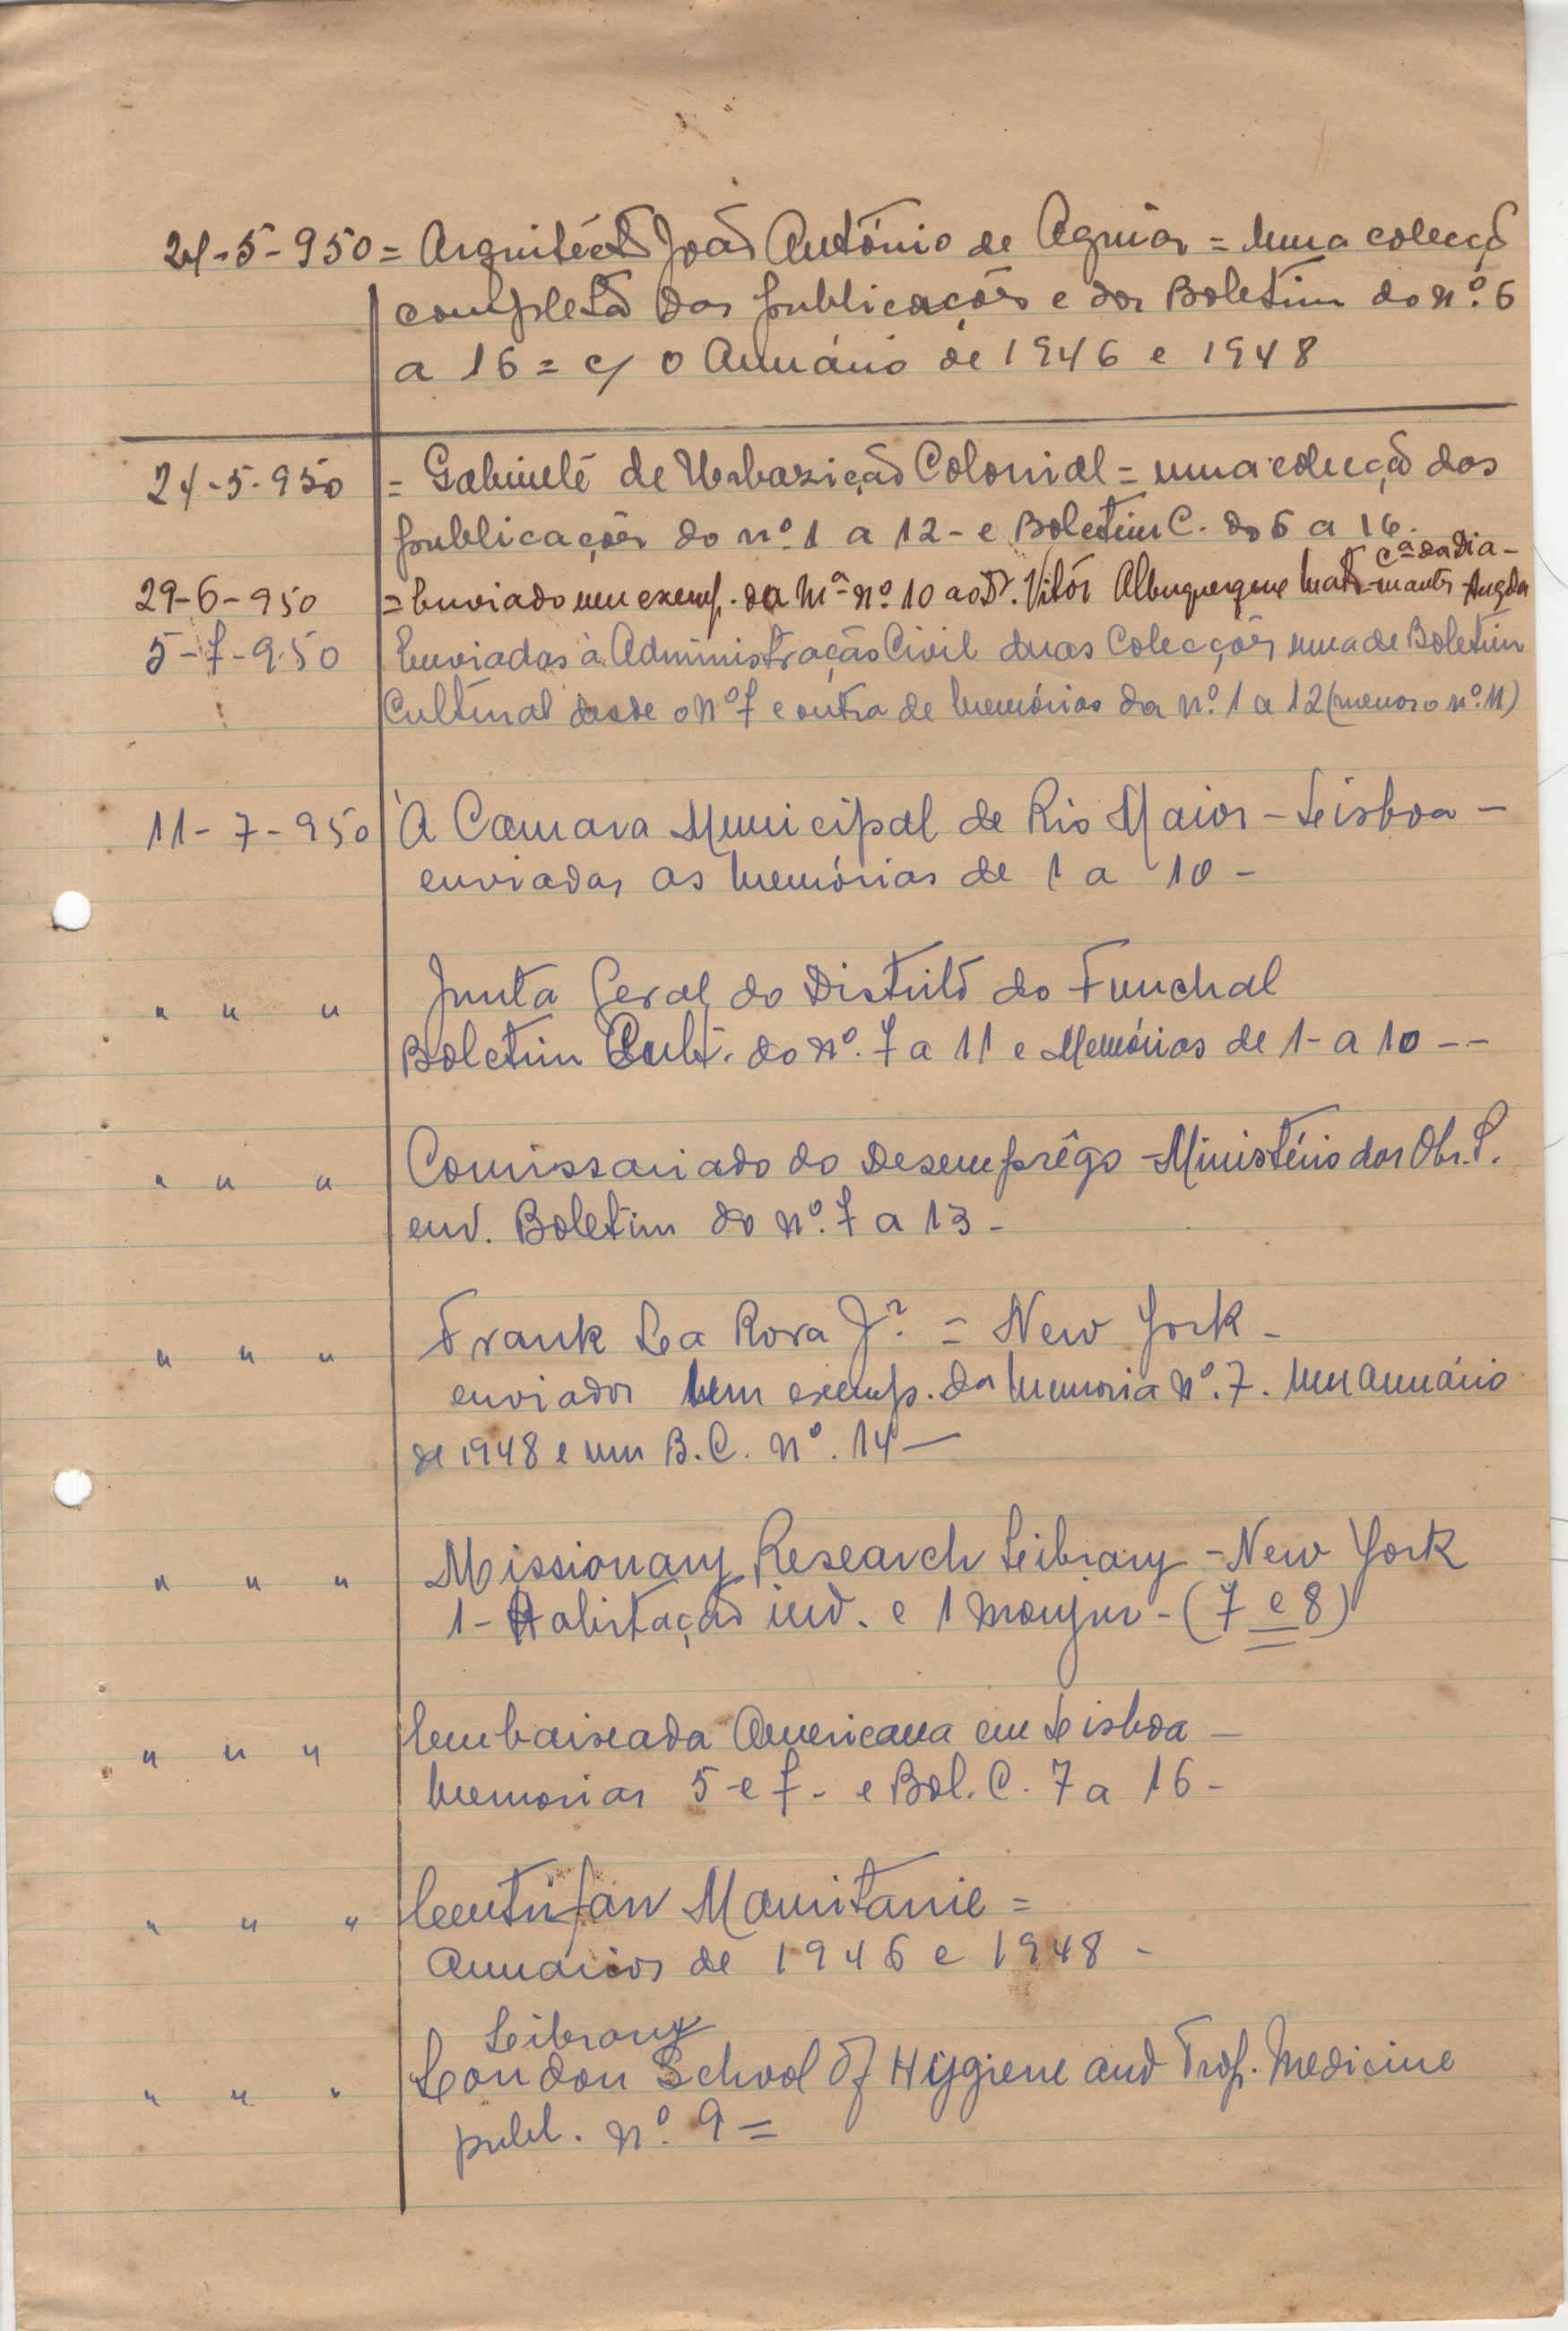 24-5-950 = Arquitécto João António de Aguiar = Uma colecção
completa das publicações e dos Boletim do nº. 6
a 16 = c/ o Anuário de 1946 e 1948
24-5-950 = Gabinete de Urbazição Colonial = uma colecção das
publicações do nº. 1 a 12 - e Boletim C. do 6 a 16.
Cª da Dia-
29-6-950 = Enviado um exemp. da Mª nº. 10 ao Dr. Vitór Albuquerque Matos - mants - Angola
5-7-950 Enviadas à Administração Civil duas Colecções uma de Boletim
Cultural desde o Nº 7 e outra de Memórias da nº. 1 a 12 (menos o nº. 11)
11-7-950 À Camara Municipal de Rio Maior - Lisboa -
enviadas as Memórias de 1 a 10 -
" " " Junta Geral do Distrito do Funchal
Boletim Cult. do nº. 7 a 11 e Memórias de 1- a 10 --
" " " Comissariado do Desemprêgo - Ministério das Obr. P.
env. Boletim do nº. 7 a 13 -
" " " Frank La Rosa Jr. = New York -
enviados Um exemp. da Memoria nº. 7. Um Anuário
de 1948 e um B.C. nº. 14 -
" " " Missionary Research Library - New York
1- Habitação ind. e 1 Monjur - (7 e 8)
" " " Embaixada Americana em Lisboa -
Memorias 5 e 7 - e Bol. C. 7 a 16 -
" " " Centrifan Mauritanie =
Anuários de 1946 e 1948 -
Library
" " " London School of Hygiene and Trop. Medicine
publ. nº. 9 =